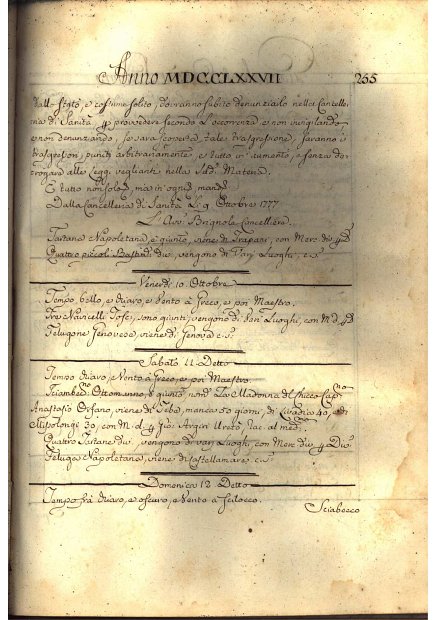 Anno MDCCLXXVII 265
dallo Stato, e costume solito, dovranno subito denunziarlo nella Cancelle-
ria di Sanità, p provvedere secondo l'occorenza e non invigilando
e non denunziando, se sarà scoperta tale trasgressione, saranno i
trasgressori puniti arbitrariamente e tutto in aumento, e senza de-
rogare alle Leggi veglianti nella Sud.ª Materia.
E tutto non solo d. ma in ogni mando
Dalla Cancelleria di Sanità Li 9 Ottobre 1777
L'Avv. Brignole Cancelliere
Tartana Napoletana, è giunto, viene di Trapani, con Merc. div. p D.
Quattro piccoli Bastim. div. vengono di Varj Luoghi, c. s.
Venerdì 10 Ottobre
Tempo bello, e chiaro, e Vento à Greco, e poi Maestro.
Tre Navicelli Tosc. sono giunti, vengono di Varj Luoghi, con M. d. p D.
Felugone Genovese, viene di Genova c. s.
Sabato 11 Detto
Tempo chiaro, e Vento à Greco, e poi Maestro.
Sciambec.no Ottomanno, è giunto, nom.º La Madonna del Cap.no
Anastasio Orfano, viene di manca 50 giorni, di 40, e di
Missolongi 30, con M. d. p
Quattro Tartane div. vengono di varj Luoghi, con Merc. div. p Div.
Feluga Napoletana, viene di Castellamare c. s.
Domenica 12 Detto
Tempo frà chiaro, e oscuro, e Vento à Scilocco.
Sciabecco